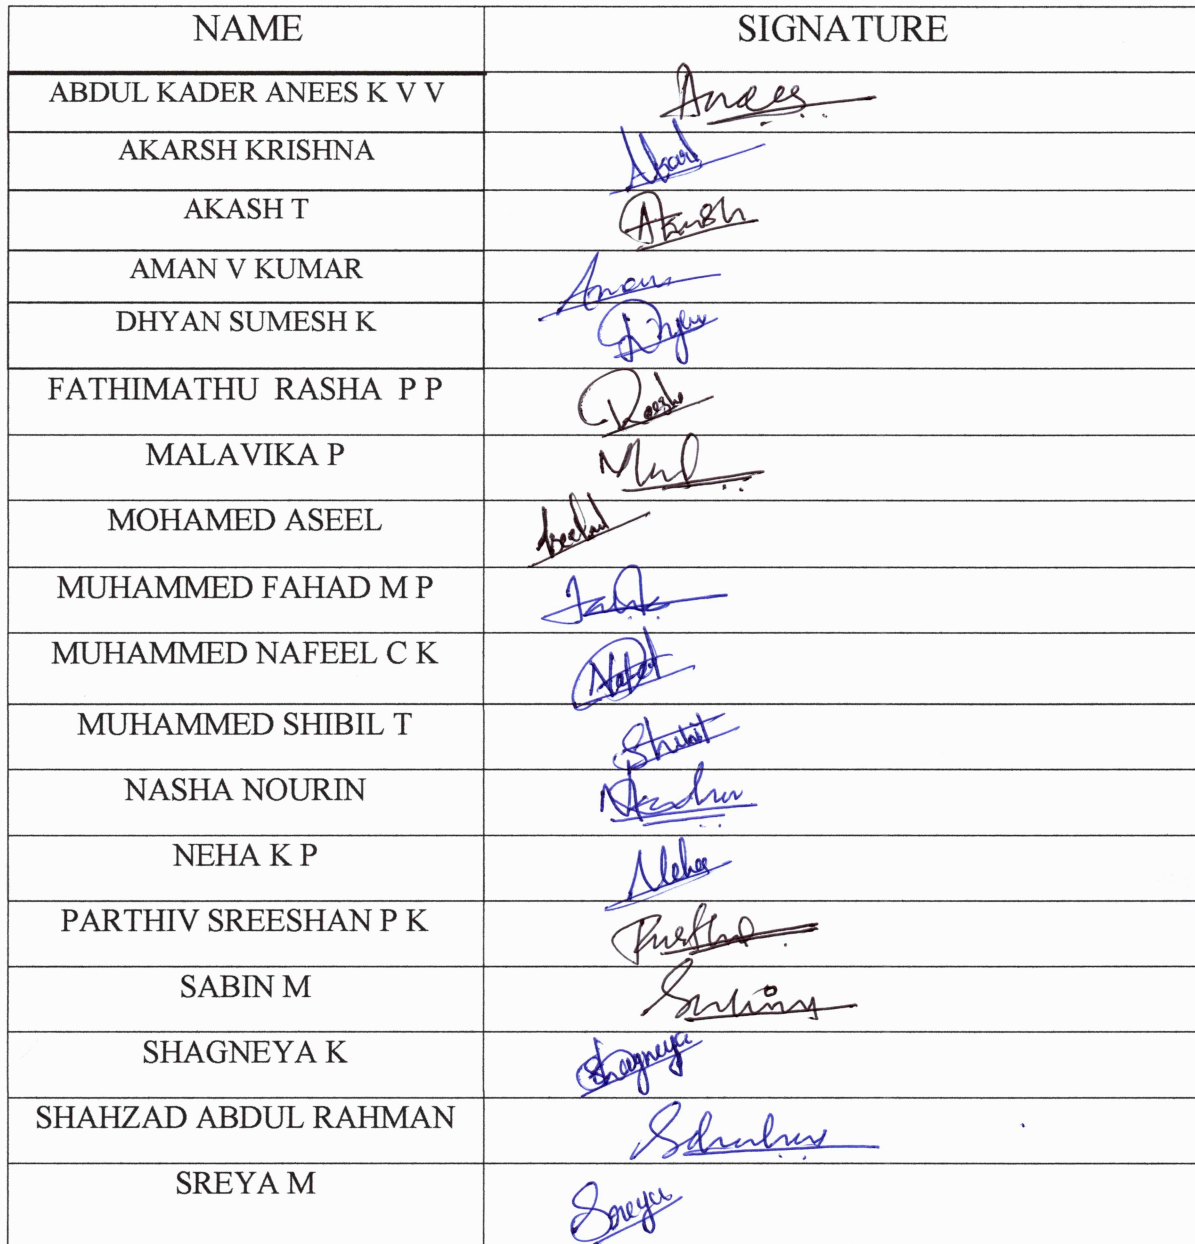 NAME SIGNATURE
ABDUL KADER ANEES K V V Anees
AKARSH KRISHNA
AKASH T Akash
AMAN V KUMAR Aman
DHYAN SUMESH K Dhyan
FATHIMATHU RASHA P P Rasha
MALAVIKA P
MOHAMED ASEEL
MUHAMMED FAHAD M P
MUHAMMED NAFEEL C K
MUHAMMED SHIBIL T
NASHA NOURIN
NEHA K P Neha
PARTHIV SREESHAN P K
SABIN M
SHAGNEYA K Shagneya
SHAHZAD ABDUL RAHMAN
SREYA M Sreya